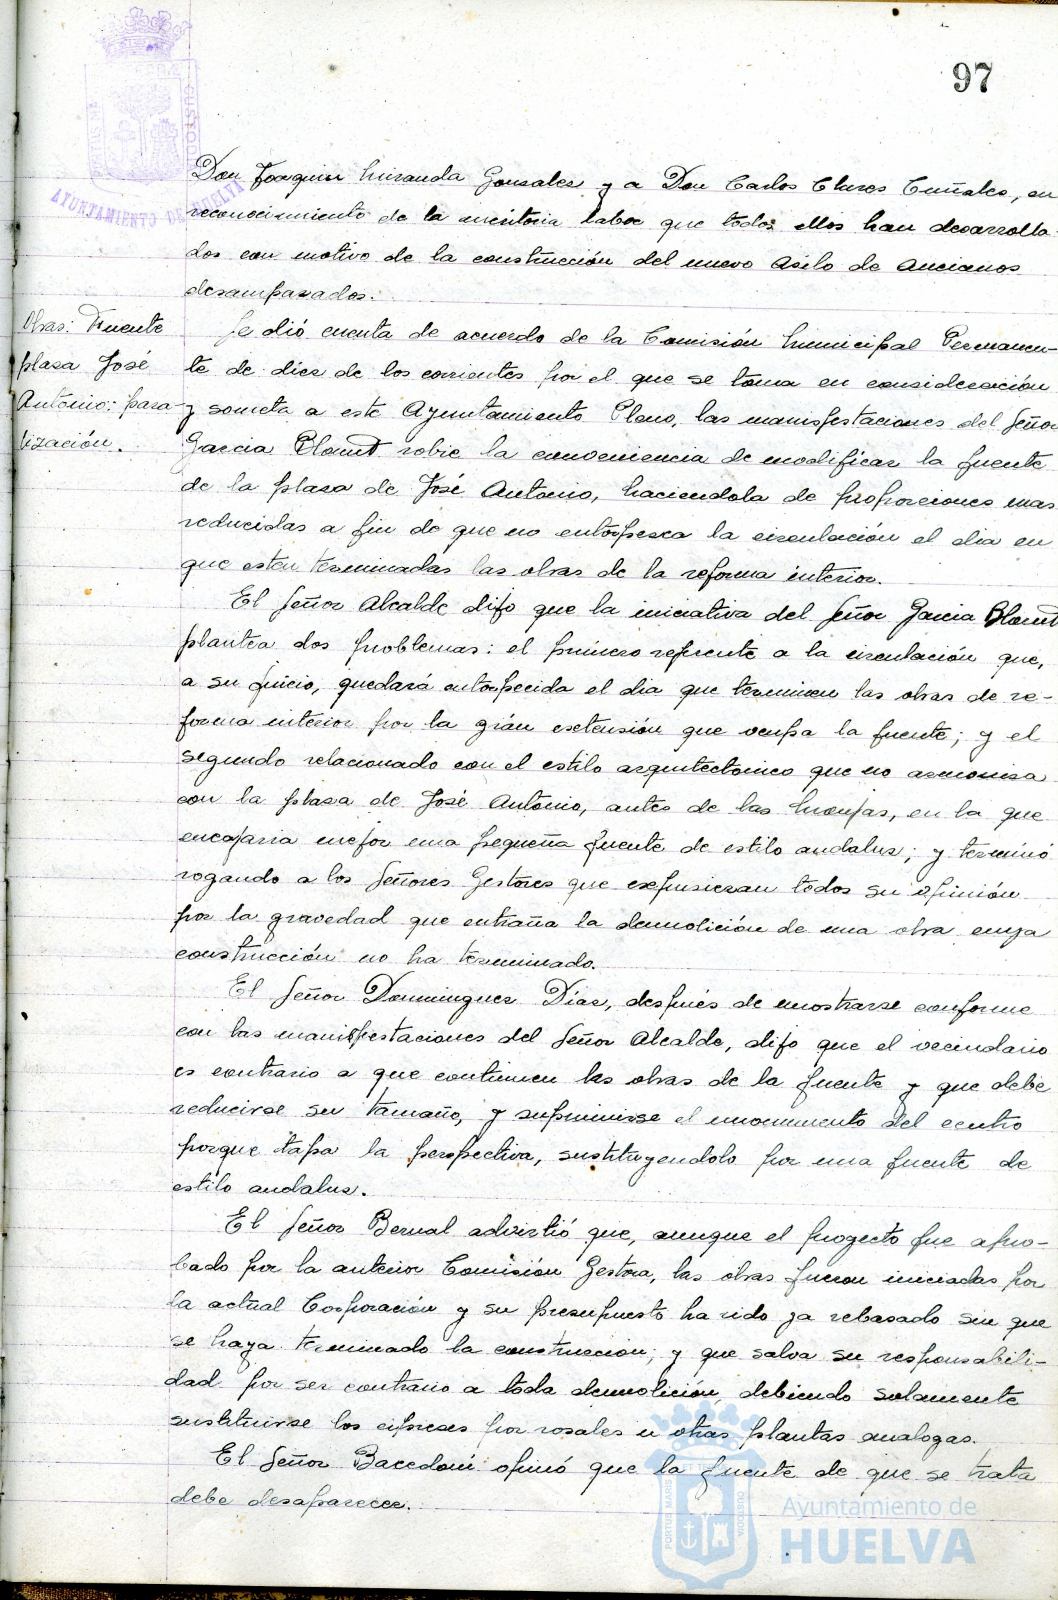 97
AYUNTAMIENTO DE HUELVA
Don Joaquin Miranda Gonzalez y a Don Carlos en
reconocimiento de la meritoria labor que todos ellos han desarrolla-
dos con motivo de la construcción del nuevo Asilo de Ancianos
desamparados.
Obras: Fuente
plaza José
Antonio: para-
lización.
Se dió cuenta de acuerdo de la Comisión Municipal Permanen-
te de diez de los corrientes por el que se toma en consideración
y someta a este Ayuntamiento Pleno, las manifestaciones del Señor
Garcia sobre la conveniencia de modificar la fuente
de la plaza de José Antonio, haciendola de proporciones mas
reducidas a fin de que no entorpezca la circulación el dia en
que esten terminadas las obras de la reforma interior.
El Señor Alcalde dijo que la iniciativa del Señor Garcia
plantea dos problemas: el primero referente a la circulación que,
a su juicio, quedará entorpecida el dia que terminen las obras de re-
forma interior por la grán extensión que ocupa la fuente; y el
segundo relacionado con el estilo arquitectonico que no armoniza
con la plaza de José Antonio, antes de las Monjas, en la que
encajaria mejor una pequeña fuente de estilo andaluz; y terminó
rogando a los Señores Gestores que expusieran todos su opinión
por la gravedad que entraña la demolición de una obra cuya
construcción no ha terminado.
El Señor Dominguez Diaz, después de mostrarse conforme
con las manifestaciones del Señor Alcalde, dijo que el vecindario
es contrario a que continuen las obras de la fuente y que debe
reducirse su tamaño, y suprimirse el monumento del centro
porque tapa la perspectiva, sustituyendolo por una fuente de
estilo andaluz.
El Señor Bernal advirtió que, aunque el proyecto fue apro-
bado por la anterior Comisión Gestora, las obras fueron iniciadas por
la actual Corporación y su presupuesto ha sido ya rebasado sin que
se haya terminado la construccion; y que salva su responsabili-
dad por ser contrario a toda demolición, debiendo solamente
sustituirse los cipreses por rosales u otras plantas analogas.
El Señor Bacedoni opinó que la fuente de que se trata
debe desaparecer.
Ayuntamiento de
HUELVA